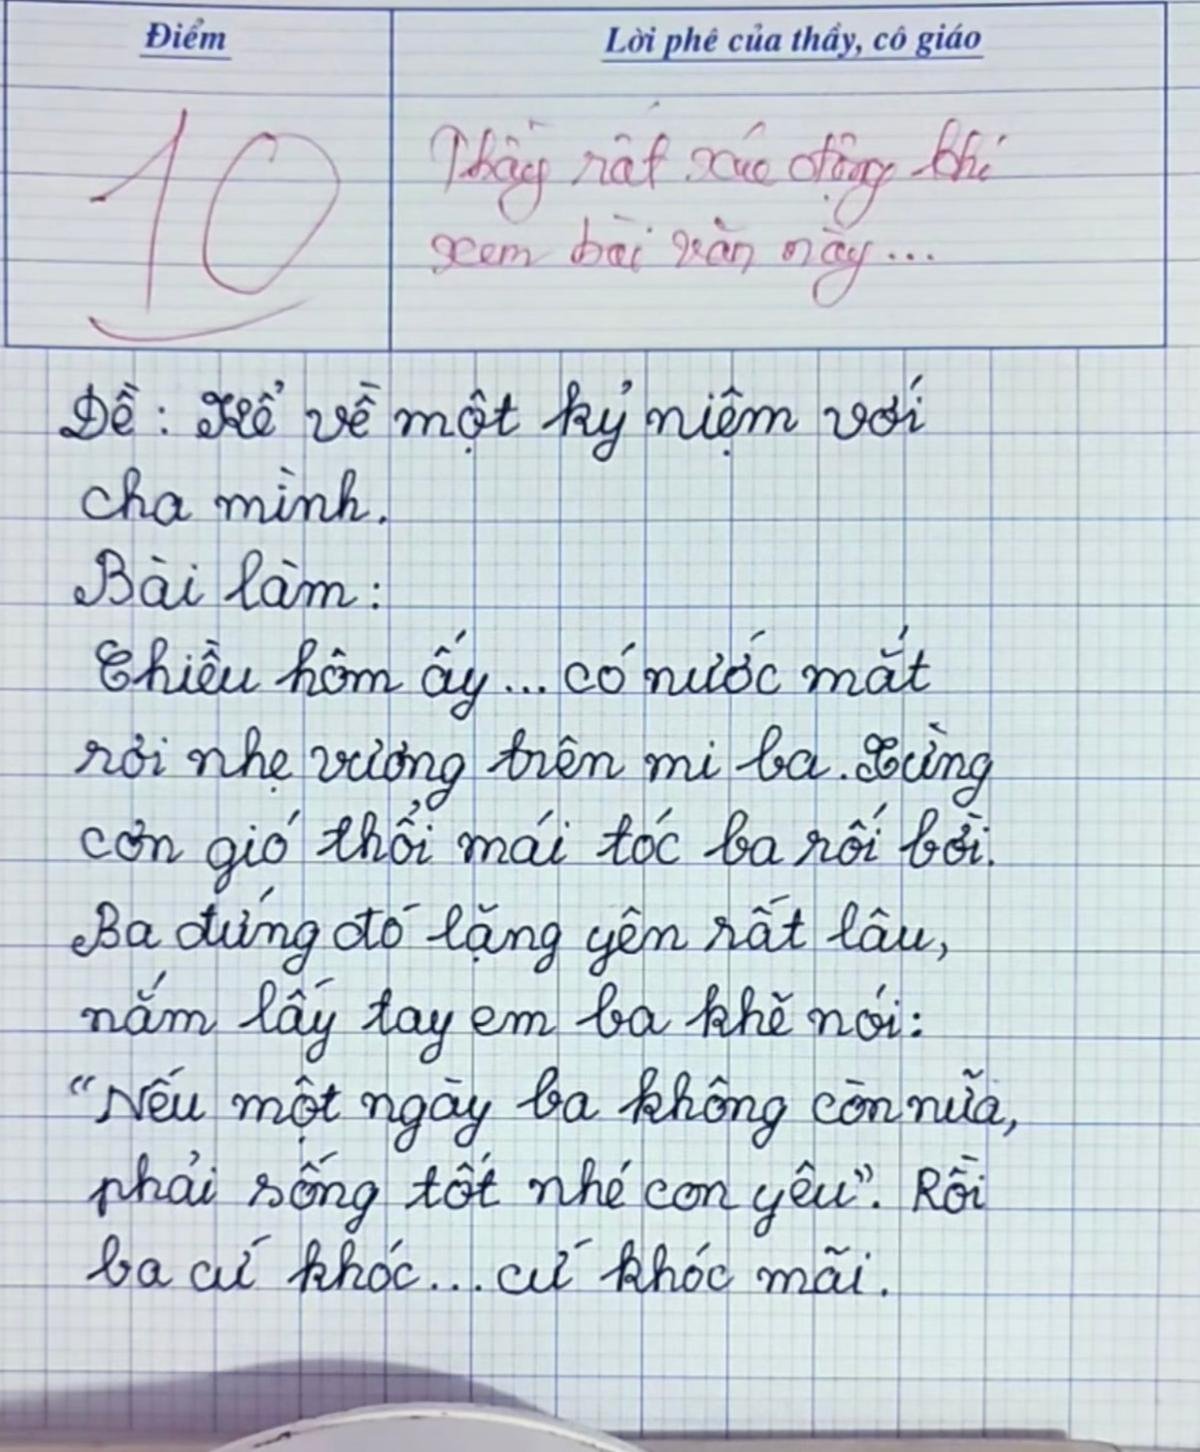 Điểm
Lời phê của thầy, cô giáo
10
Thầy rất xúc động khi
xem bài văn này...
Đề: Kể về một kỷ niệm với
cha mình.
Bài làm:
Chiều hôm ấy... có nước mắt
rơi nhẹ vương trên mi ba. Từng
cơn gió thổi mái tóc ba rối bời.
Ba đứng đó lặng yên rất lâu,
nắm lấy tay em ba khẽ nói:
"Nếu một ngày ba không còn nữa,
phải sống tốt nhé con yêu". Rồi
ba cứ khóc... cứ khóc mãi.